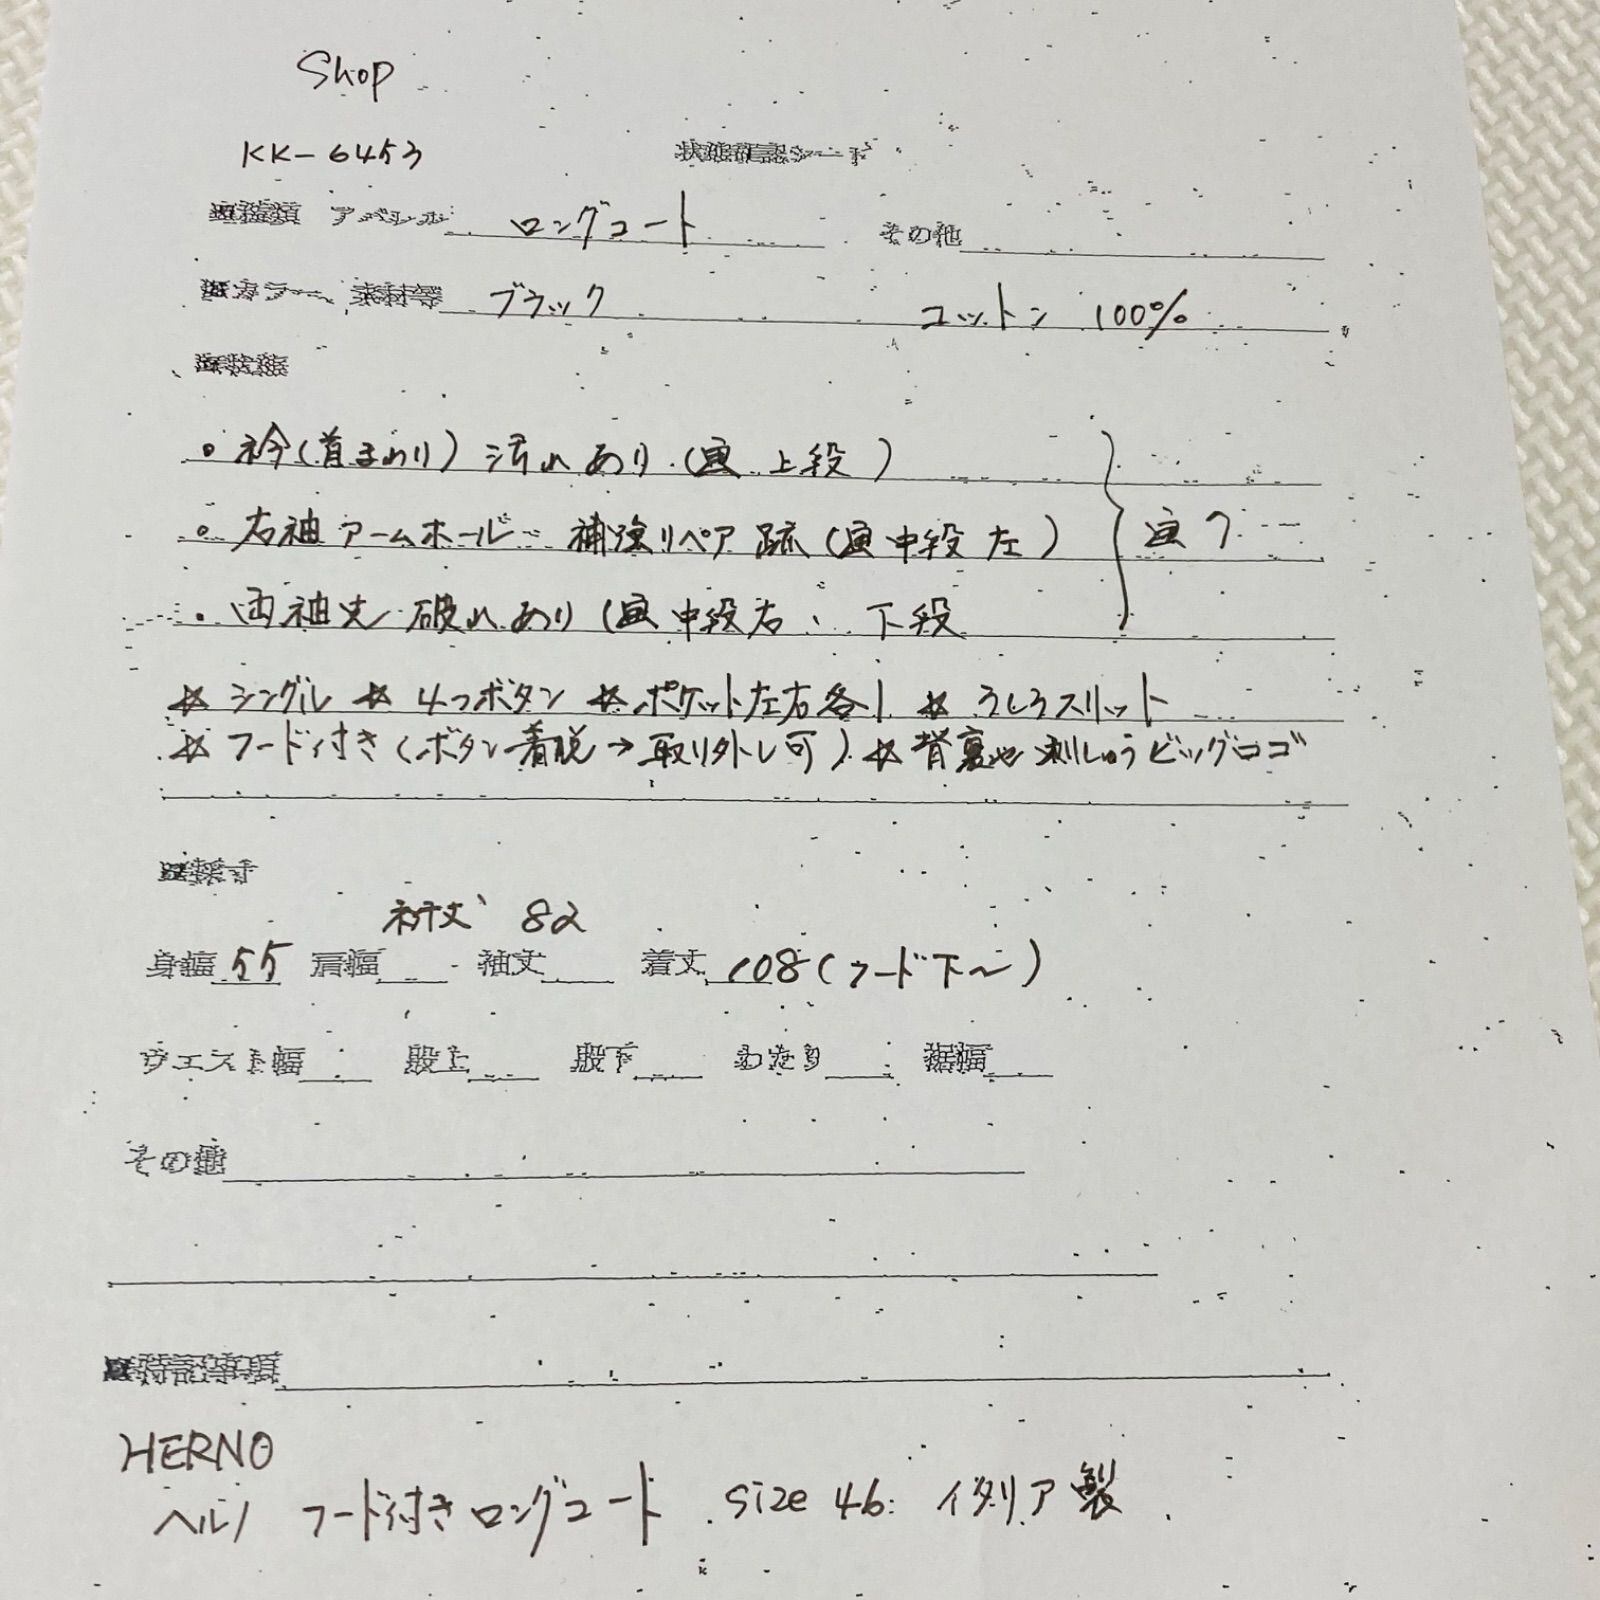 Shop
KK-6453 状態確認シート
アパレル ロングコート その他
カラー、素材等 ブラック コットン 100%
状態
。衿(首まわり) 汚れあり (画 上段)
。右袖アームホール 補強リペア跡 (画中段左) 画7
・両袖丈 破れあり (画中段右、下段
☆シングル ☆4つボタン ☆ポケット左右各1 ☆うしろスリット
☆フード付き (ボタン着脱→取り外し可) ☆背裏地 刺しゅうビッグロゴ
採寸
裄丈 82
身幅 55 肩幅 袖丈 着丈 108 (フード下〜)
ウエスト幅 股上 股下 わたり 裾幅
その他
特記事項
HERNO
ヘルノ フード付きロングコート size 46 イタリア製